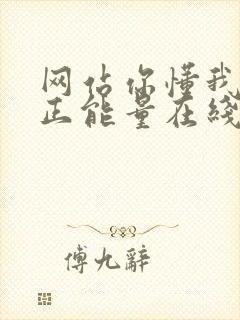 网站你懂我
正能量在线
傅九辞